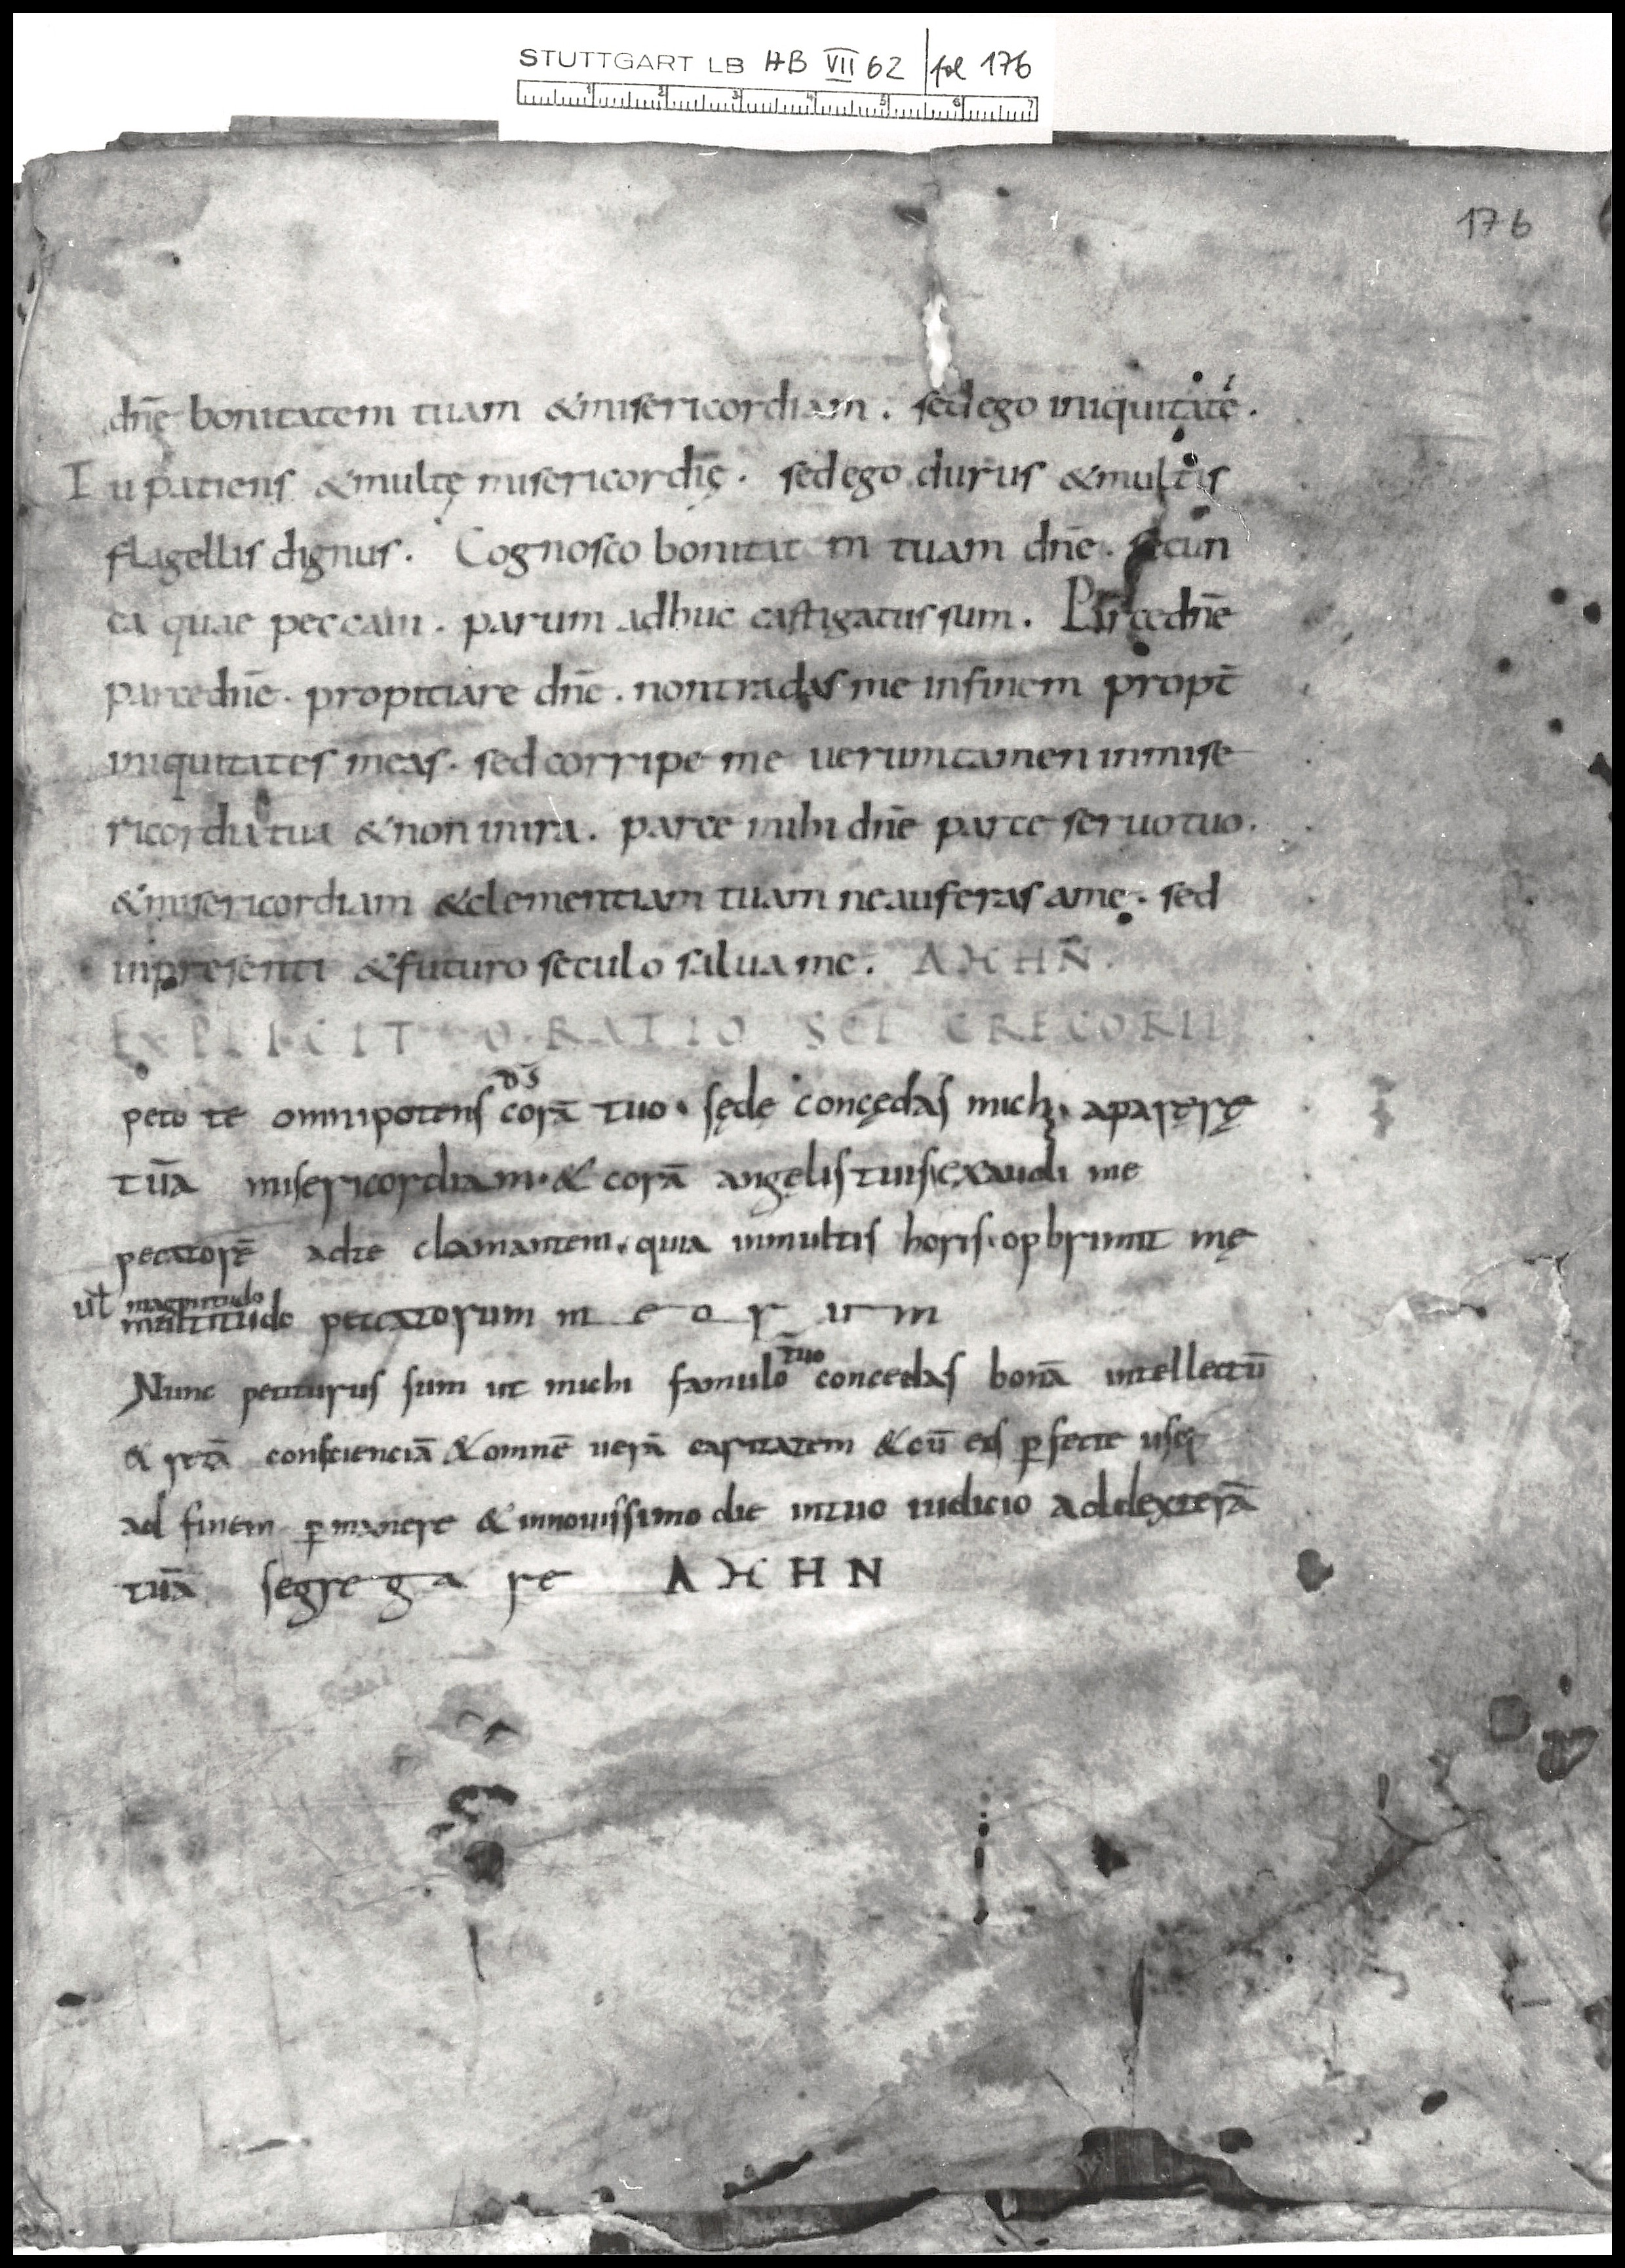 STUTTGART LB HB VII 62 fol 176
176
dnē bonitatem tuam & misericordiam . sed ego iniquitatē .
Tu patiens & multę misericordię . sed ego durus & multis
flagellis dignus . Cognosco bonitat m tuam dnē .
ea quae peccaui . parum adhuc castigatus sum . Parce dnē
parce dnē . propitiare dnē . non tradas me in finem propt̄
iniquitates meas . sed corripe me uerumtamen in mise
ricordia tua & non in ira . parce mihi dnē parce seruo tuo .
& misericordiam & clementiam tuam ne auferas a me . sed
in presenti & futuro seculo salua me . ΑΧΗΝ̄ .
EXPLICIT ORATIO SCI GREGORII
ds̄
peto te omnipotens corā tuo . sęde concędas michi . aparęrę
tūā misericordiam . & corā angęlis tuis exaudi me
pecatorē ad te clamantem . quia in multis horis . opbriunt mę
ut̄ magnitudo
multitudo peccatorum m e o r u m
tuo
Nunc petiturus sum ut michi famulo concedas bonā intellectū
& retā conscienciā & omnē uerā caritatem & cū eis ꝑfecte usq;
ad finem ꝑmanere & in nouissimo die in tuo iudicio ad dexterā
tuā segre g a re ΑΧΗΝ